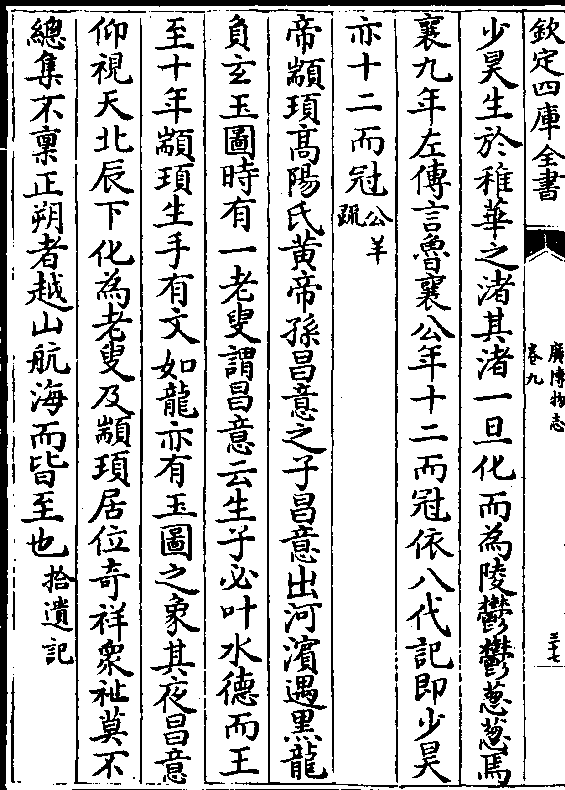 欽定四庫全書
廣博物志
卷九
三十七
少昊生於稚華之渚其渚一旦化而為陵鬱鬱葱葱焉
襄九年左傳言魯襄公年十二而冠依八代記即少昊
亦十二而冠公羊疏
帝顓頊髙陽氏黄帝孫昌意之子昌意出河濱遇黒龍
負玄玉圖時有一老叟謂昌意云生子必叶水德而王
至十年顓頊生手有文如龍亦有玉圖之象其夜昌意
仰視天北辰下化為老叟及顓頊居位奇祥衆祉莫不
總集不稟正朔者越山航海而皆至也拾遺記